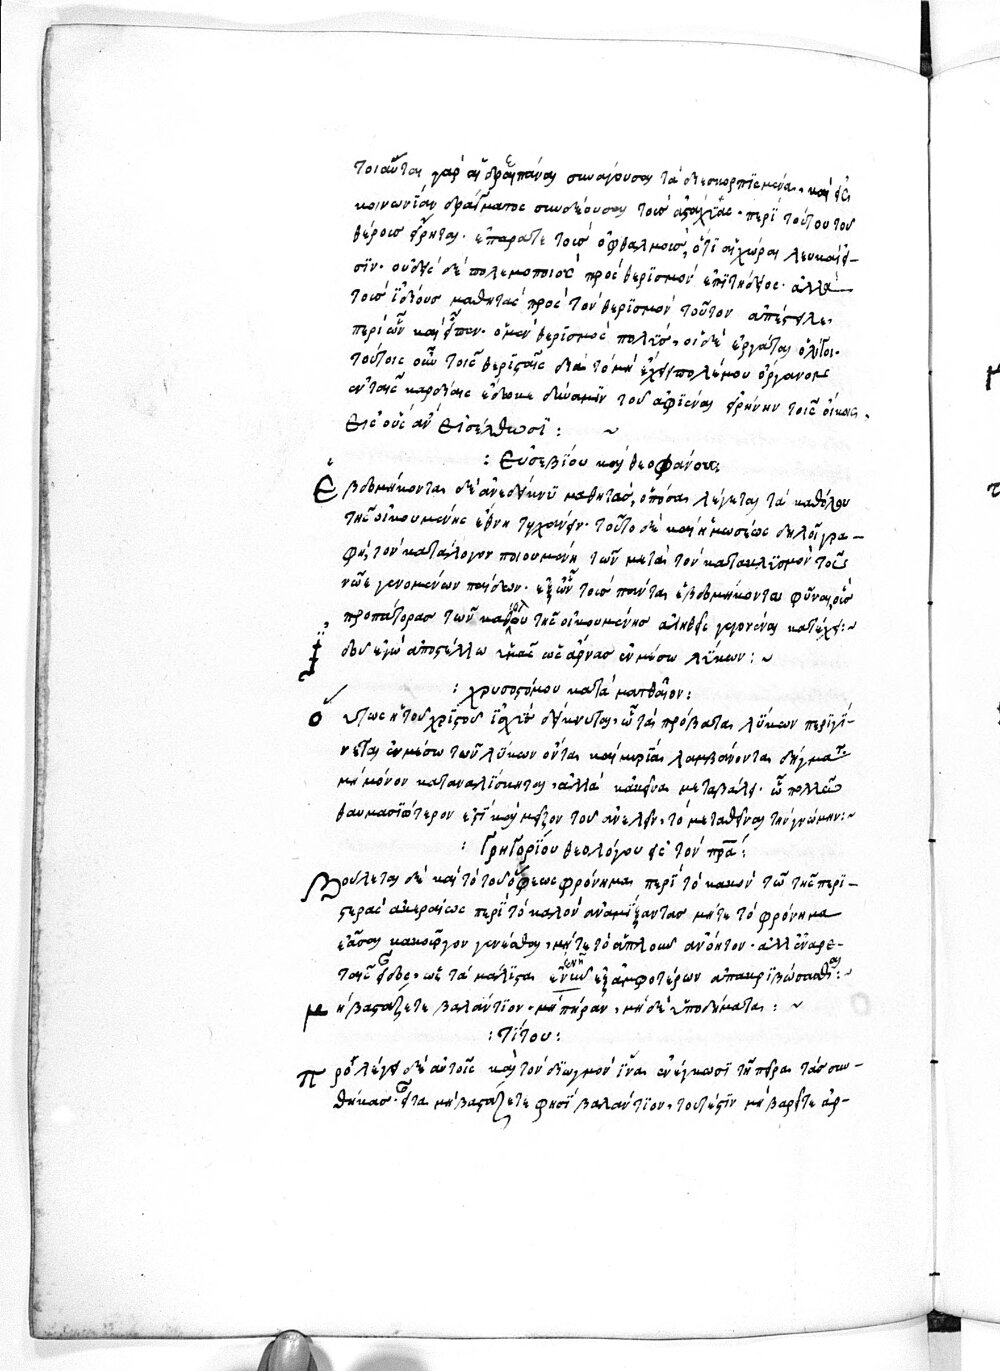 τοιαῦται γὰρ αἱ δρεπάναι συνάγουσαι τὰ διεσκορπισμένα, καὶ εἰς
κοινωνίαν δράγματος συνδέουσαι τοὺς ἀστάχυας· περὶ τούτου τοῦ
θέρους εἴρηται· ἐπάρατε τοὺς ὀφθαλμοὺς, ὅτι αἱ χῶραι λευκαί εἰ-
σϊν· οὐδεὶς δὲ πολεμοποιὸς πρὸς θερϊσμὸν ἐπϊτήδειος· ἀλλὰ
τοὺς ἰδίους μαθητὰς πρὸς τὸν θερϊσμὸν τοῦτον ἀπέστειλε,
περὶ ὧν καὶ εἶπεν· ὁ μὲν θερϊσμὸς πολὺς, οἱ δὲ ἐργάται ὀλίγοι·
τούτοις οὖν τοῖς θερϊσταῖς διὰ τὸ μὴ ἔχειν πολέμου ὄργανον
ἐν ταῖς καρδίαις ἔδωκε δύναμϊν τοῦ ἀφϊέναι εἰρήνην τοῖς οἴκοις,
εἰς οὓς ἂν εἰσέλθωσϊ: ~
: Εὐσεβΐου καὶ θεοφάνους:
Ἑβδομήκοντα δὲ ἀνεδείκνυ μαθητὰς, ὁπόσα λέγεται τὰ καθόλου
τῆς οἰκουμένης ἔθνη τυγχάνειν· τοῦτο δὲ καὶ ἡ μωσέως δηλοῖ γρα-
φὴ, τὸν κατάλογον ποιουμένη τῶν μετὰ τὸν κατακλϊσμὸν τοῖς
νῶε γενομένων παίδων· ἐξ ὧν τοὺς πάντας ἑβδομήκοντα φῦναι, οὓς
προπάτορας τῶν καθόλου τῆς οἰκουμένης ἀληθεῖς γεγονέναι κατέχει:~
Ἰδοὺ ἐγὼ ἀποστέλλω ὑμᾶς ὡς ἄρνας ἐν μέσω λύκων: ~
: χρυσοστόμου κατὰ ματθαῖον:
Οὕτως ἡ τοῦ χριστοῦ ἰσχὺς δείκνυται, ὅταν τὰ πρόβατα λύκων περιγί-
νεται ἐν μέσω τῶν λύκων ὄντα, καὶ μυρία λαμβάνοντα δήγματα
μὴ μόνον καταναλίσκηται, ἀλλὰ κἀκείνα μεταβάλει· ὃ πολλῶ
θαυμασϊώτερον ἐστϊ καὶ μεῖζον τοῦ ἀνελεῖν, τὸ μεταθεῖναι τὴν γνώμην:~
: Γρηγορΐου θεολόγου εἰς τὸν πρα:
Βούλεται δὲ καὶ τὸ τοῦ ὄφεως φρόνημα περὶ τὸ κακὸν τῶ τῆς περϊ-
στερᾶς ἀκεραίως περὶ τὸ καλὸν ἀναμίξαντας μήτε τὸ φρόνημα
ἐᾶσαι κακοῦργον γενέσθαι, μήτε τὸ ἁπλοῦν ἀνόητον· ἀλλ' ἐν ἀρε-
τῆς εἶδος, ὡς τὰ μάλϊστα ἐξ ἀμφοτέρων ἀπακριβώσασθαι:~
Μὴ βαστάζετε βαλάντϊον· μὴ πήραν, μὴ δὲ ὑποδήματα: ~
: Τΐτου:
Προλέγει δὲ αὐτοῖς καὶ τὸν διωγμὸν ἵνα ἐνέγκωσϊ τῆ πείρα τὰς συν-
θήκας· εἶτα μὴ βαστάζετε φησϊ βαλάντϊον, τουτέστϊν μὴ βαρεῖτε ἀρ-